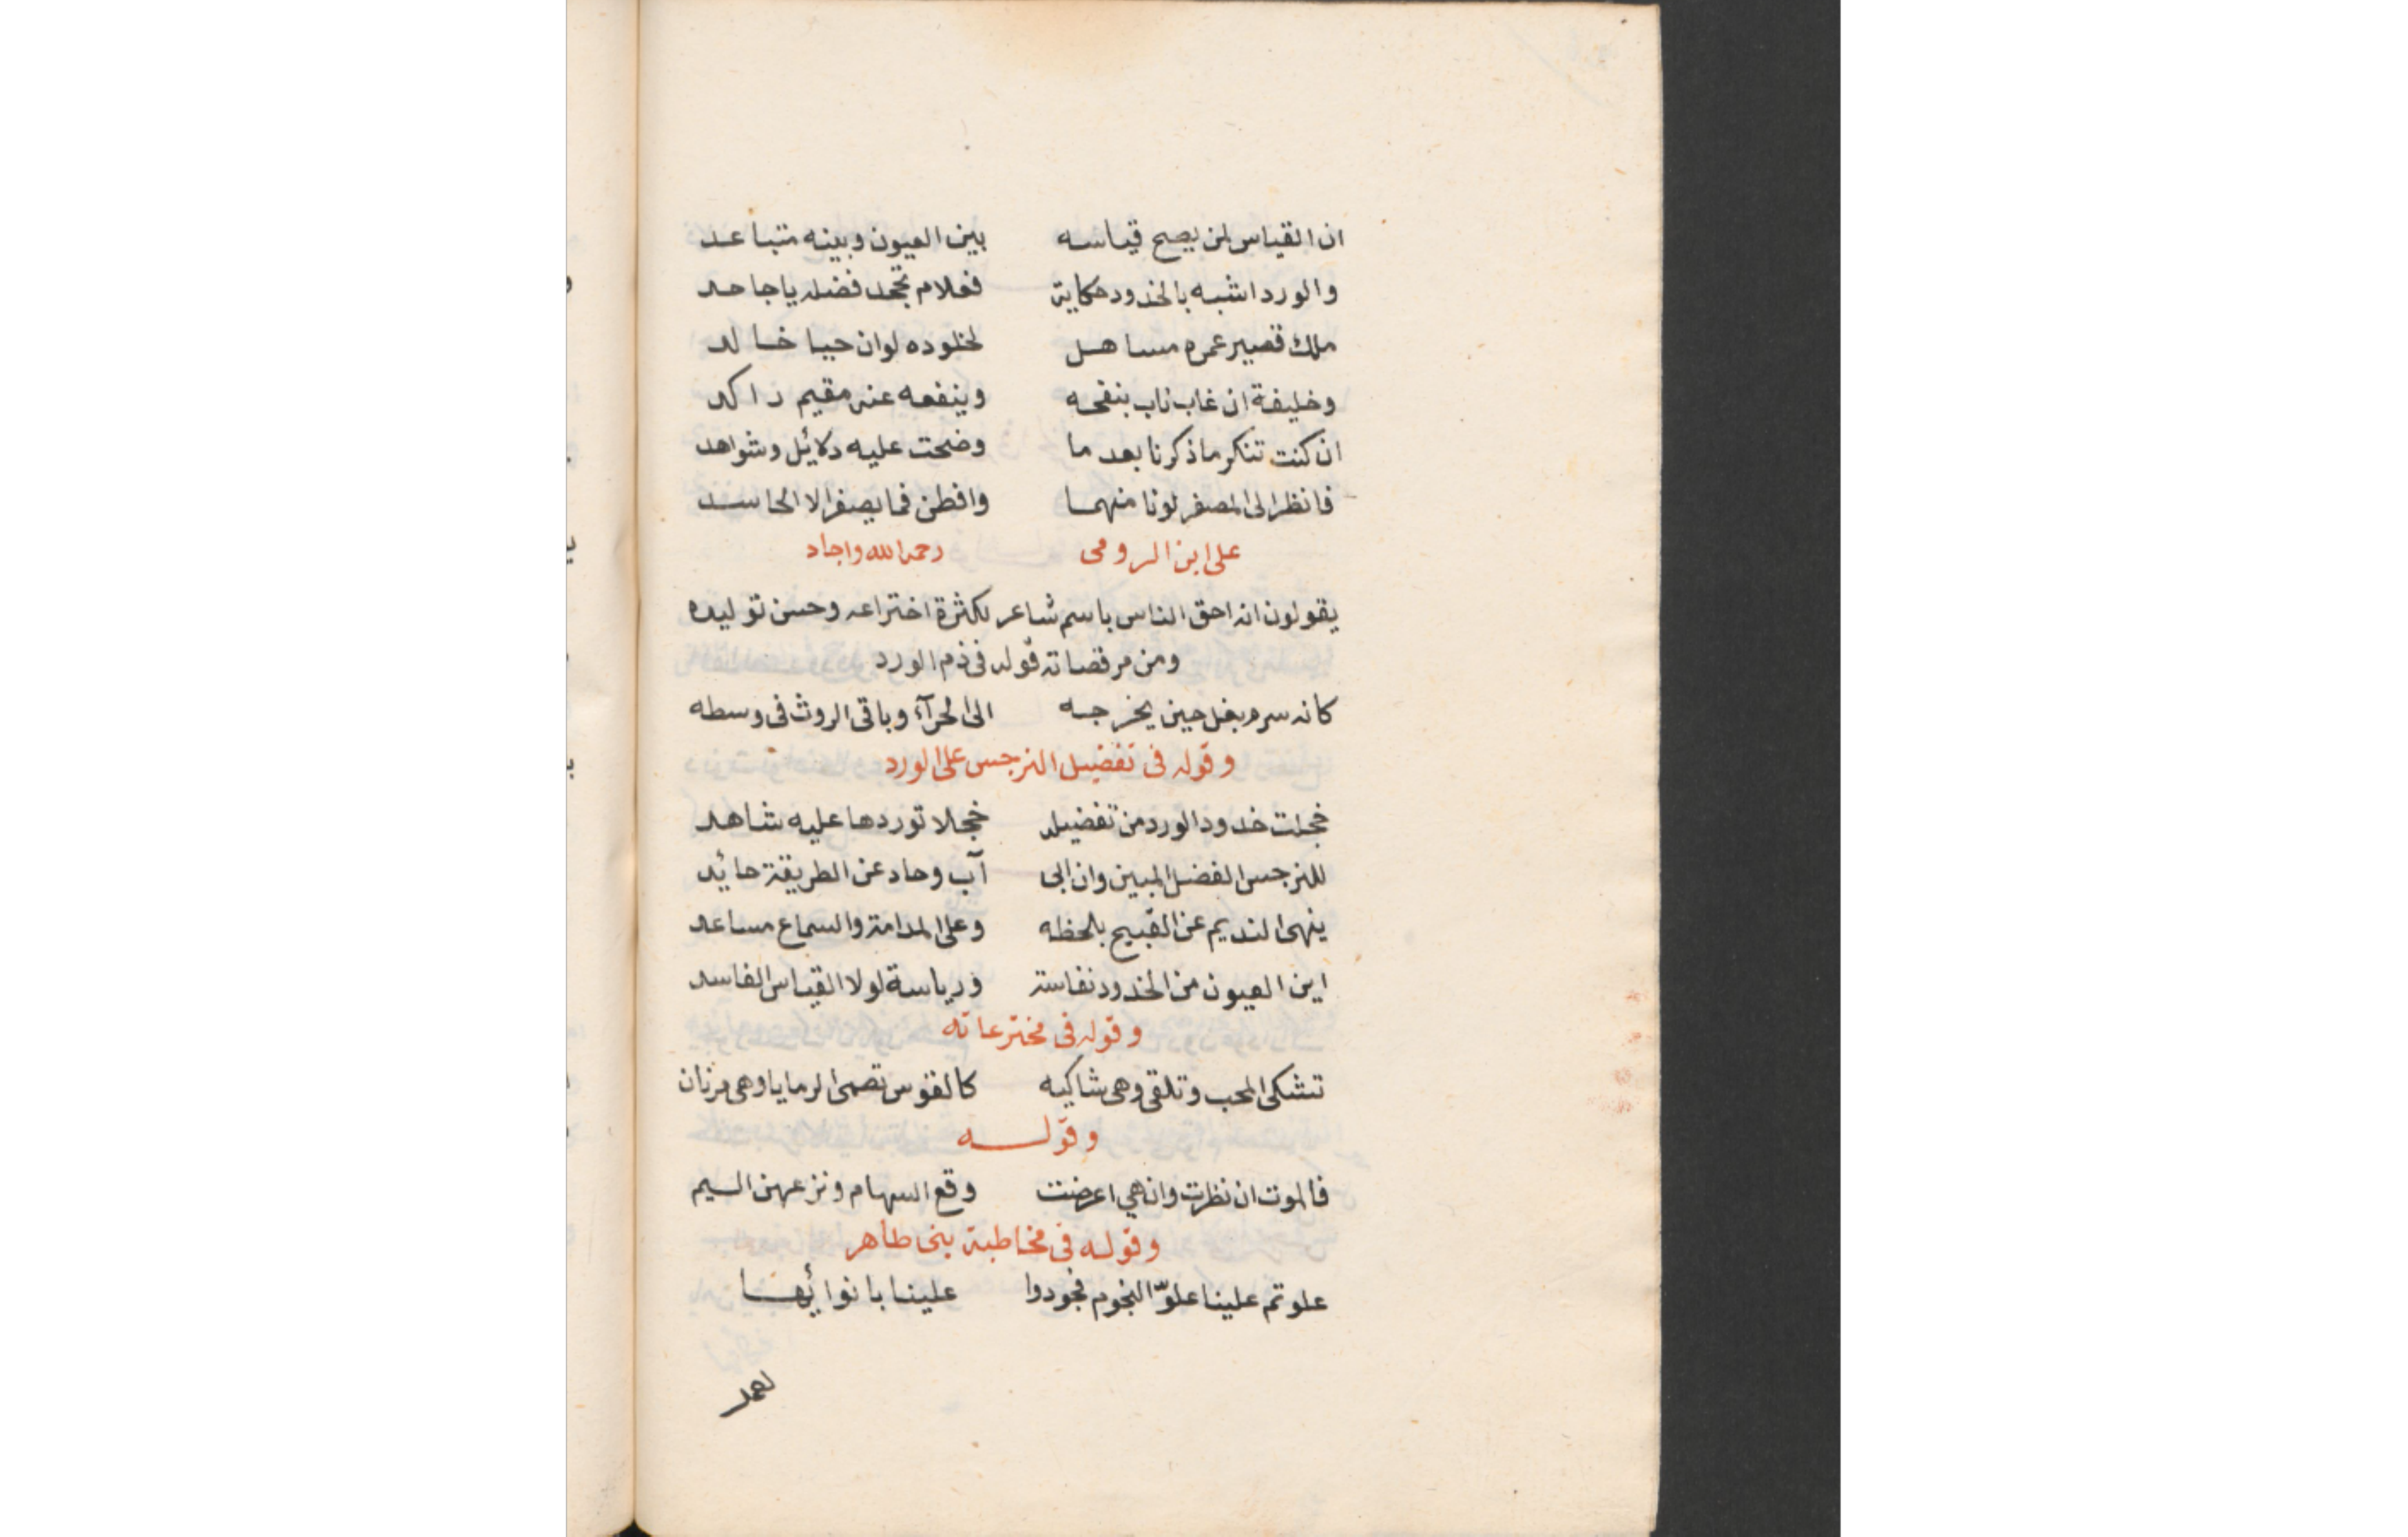 ان القياس لمن يصح قياسه بين العيون وبينه متباعد
والورد اشبه بالخدود حكاية فعلام تجحد فضله يا جاحد
ملك قصير عمره مساهل لخلوده لو ان حيا خالد
وخليفة ان غاب ناب بنفحه وينفعه عنه مقيم راكد
ان كنت تنكر ما ذكرنا بعد ما وضحت عليه دلائل وشواهد
فانظر الى المصفر لونا منهما وافطن فما يصفر الا الحاسد
على ابن الرومى رحمه الله واجاد
يقولون انه احق الناس باسم شاعر لكثرة اختراعه وحسن توليده
ومن مرقصاته قوله فى ذم الورد
كانه سرم بغل حين يخرجه الى الخرآء وباقى الروث فى وسطه
وقوله فى تفضيل النرجس على الورد
خجلت خدود الورد من تفضيله خجلا توردها عليه شاهد
للنرجس الفضل المبين وان ابى آب وحاد عن الطريقة حائد
ينهى النديم عن القبيح بلحظه وعلى المدامة والسماع مساعد
اين العيون من الخدود نفاسة ورياسة لولا القياس الفاسد
وقوله فى مخترعاته
تشكى المحب وتلقى وهى شاكيه كالقوس تصمى الرمايا وهى مرنان
وقوله
فالموت ان نظرت وان هي اعرضت وقع السهام ونزعهن اليم
وقوله فى مخاطبة بنى طاهر
علوتم علينا علوّ النجوم فجودوا علينا بانوائها